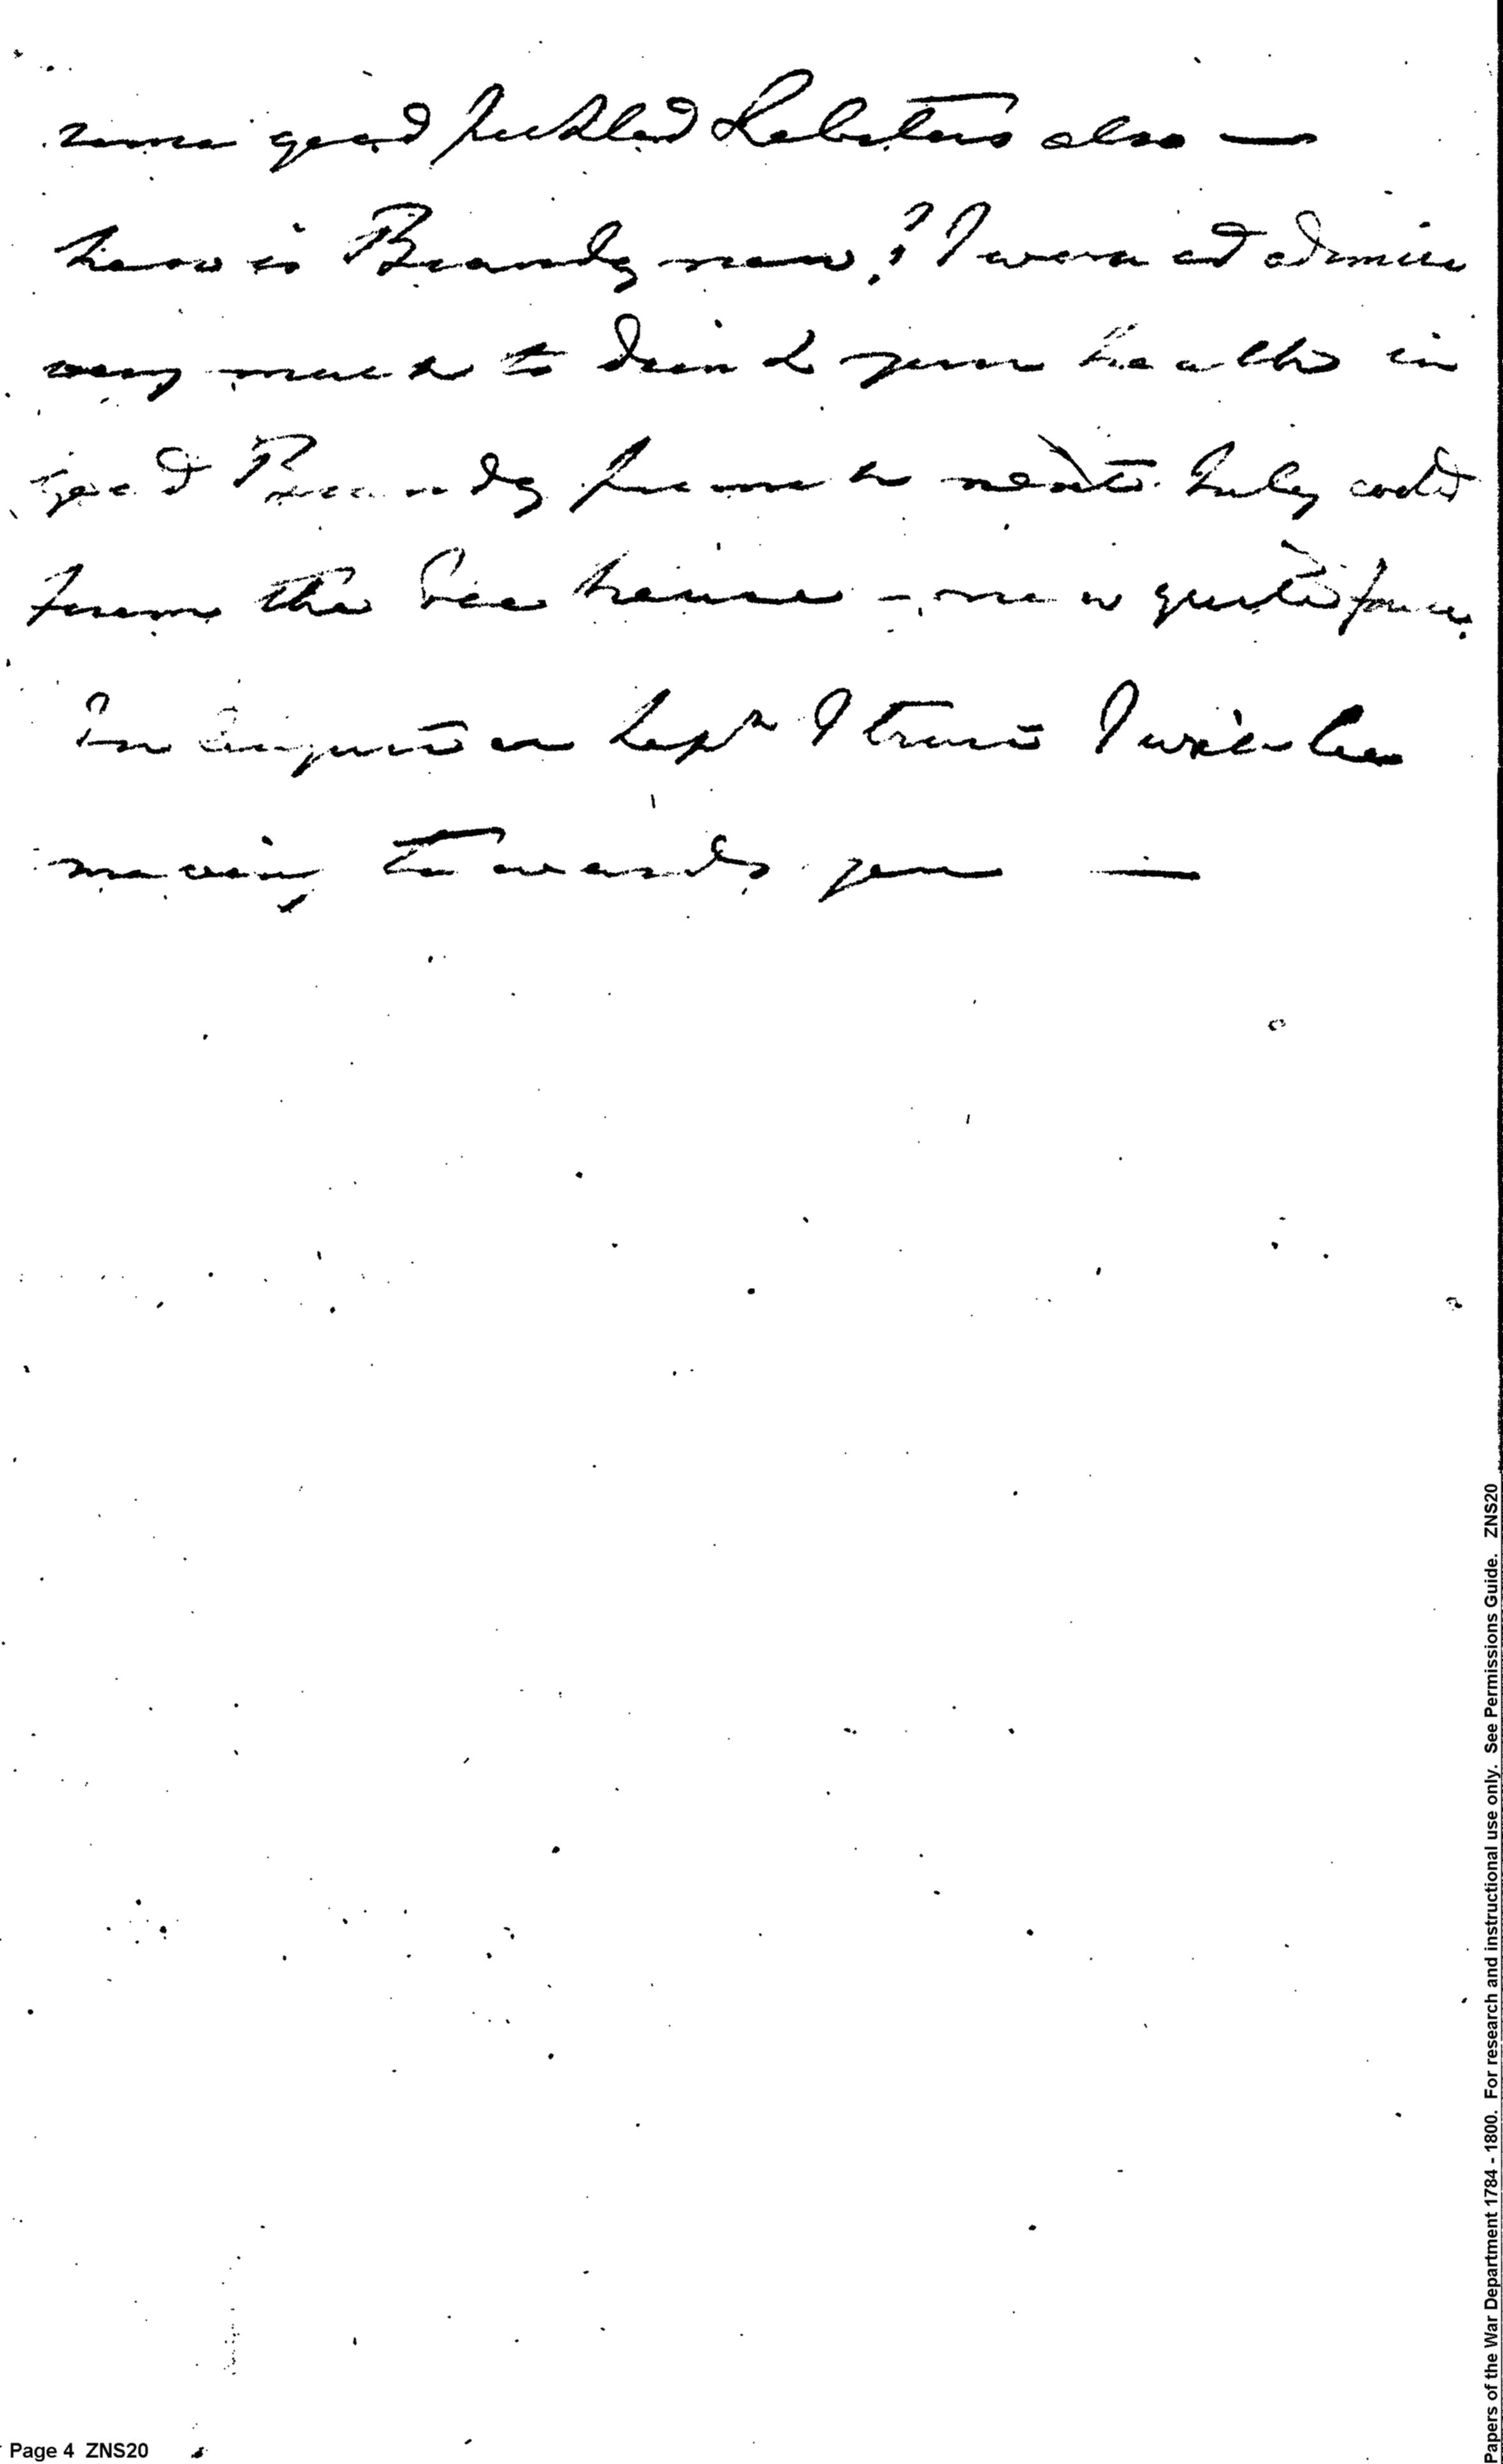 some good pickled Lobsters also —
how is Brandy now? I would admire
very much to drink your health in
good Brandy punch next July cold
from the Ice house — now quite
In August or Sept.r I trust I will be
moving towards you —
Papers of the War Department 1784 - 1800. For research and instructional use only. See Permissions Guide. ZNS20
Page 4 ZNS20